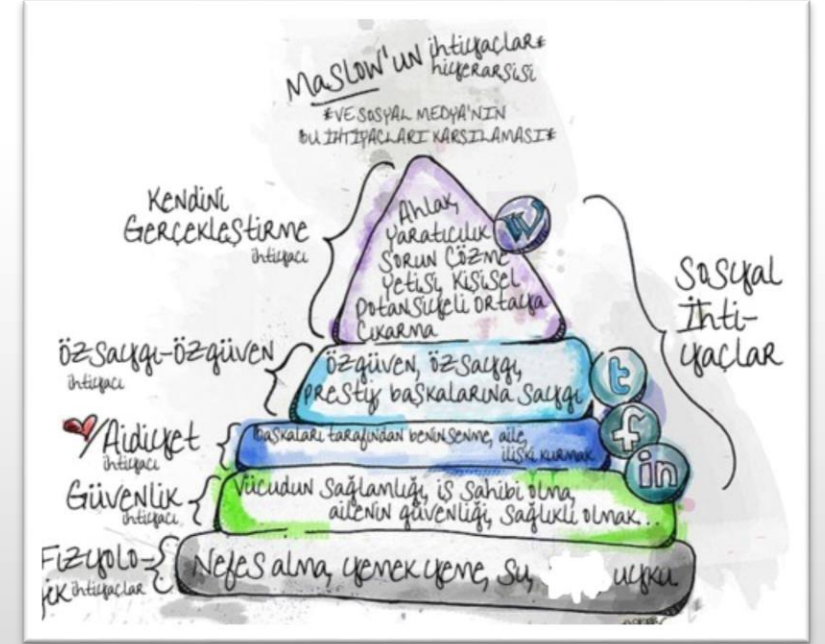 Maslow'un ihtiyaçlar*
hiyerarşisi
*VE SOSYAL MEDYA'NIN
BU İHTİYAÇLARI KARŞILAMASI*
Kendini
Gerçekleştirme
ihtiyacı
Ahlak,
yaratıcılık
sorun çözme
yetisi, kişisel
potansiyeli ortaya
çıkarma
W
Sosyal
İhti-
yaçlar
özsaygı-özgüven
ihtiyacı
özgüven, özsaygı,
prestij başkalarına saygı
t
Aidiyet
ihtiyacı
başkaları tarafından beninsenme, aile,
ilişki kurmak
f
in
Güvenlik
ihtiyacı
Vücudun sağlamlığı, iş sahibi olma,
ailenin güvenliği, sağlıklı olmak...
Fizyolo-
jik ihtiyaçlar
Nefes alma, yemek yeme, su, uyku